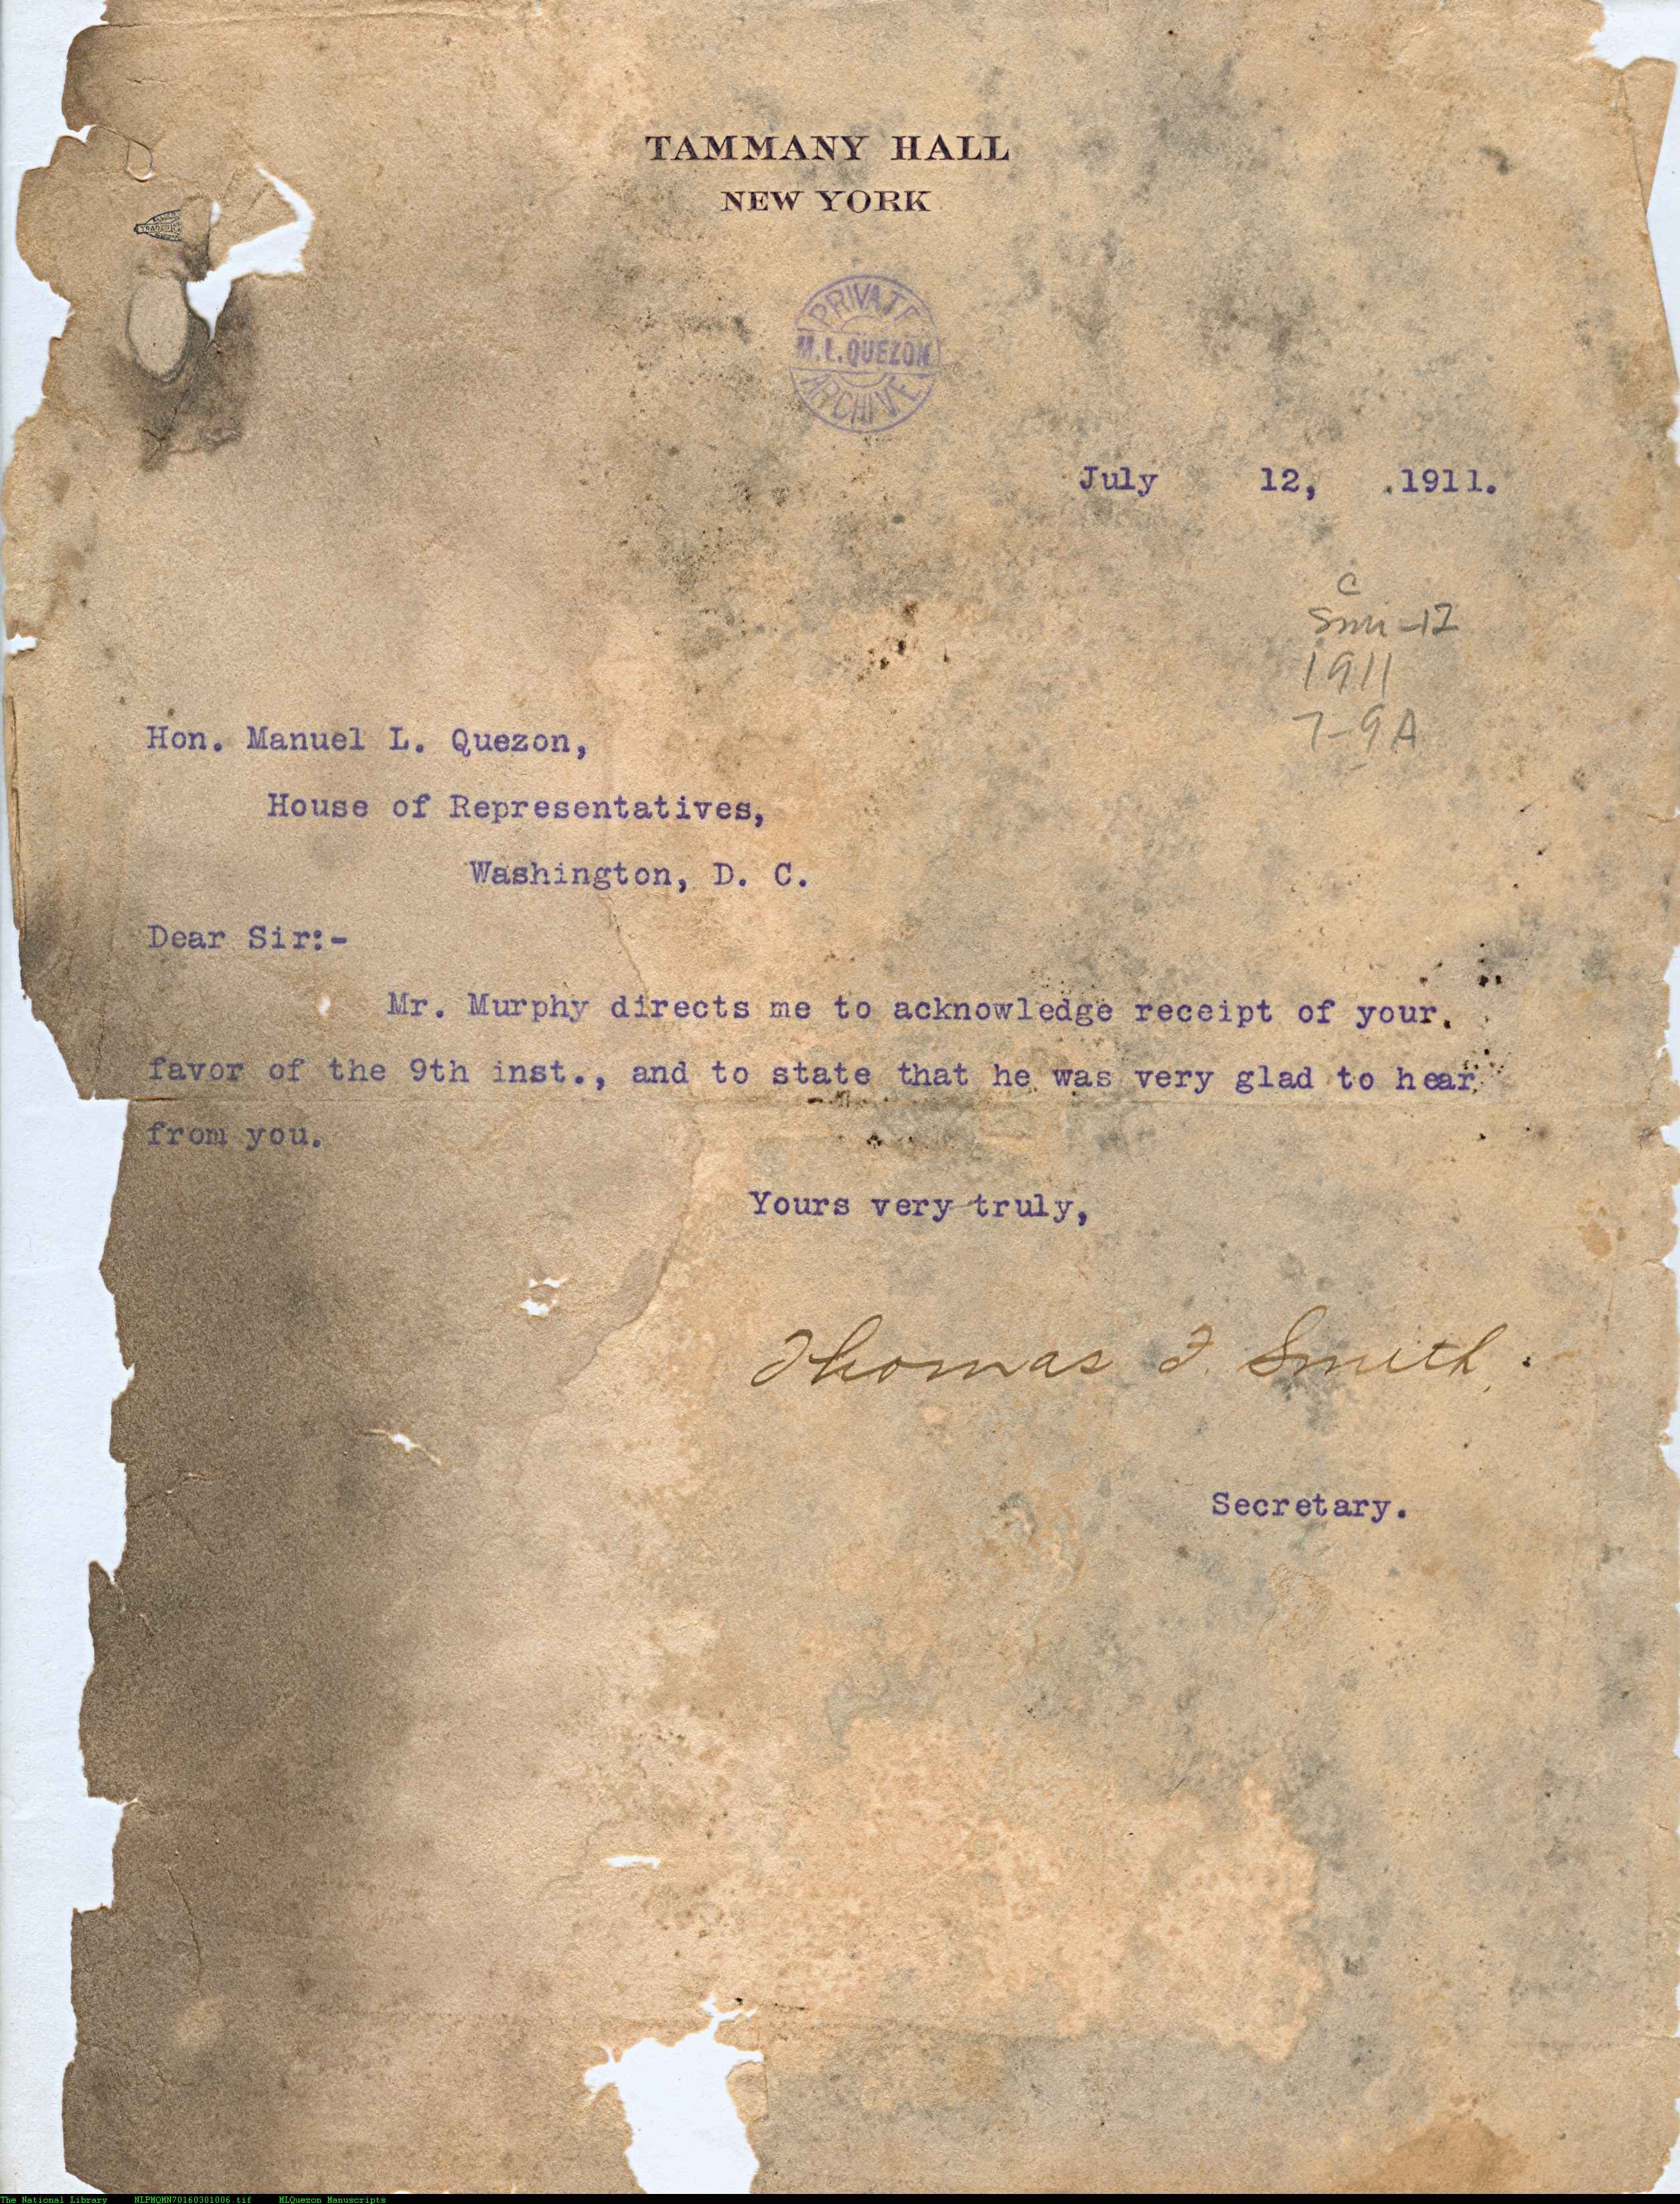 TAMMANY HALL
NEW YORK
PRIVATE
M. L. QUEZON
ARCHIVE
July 12, .1911.
C
1911
7-9A
Hon. Manuel L. Quezon,
House of Representatives,
Washington, D. C.
Dear Sir:-
Mr. Murphy directs me to acknowledge receipt of your.
favor of the 9th inst., and to state that he was very glad to hear
from you.
Yours very truly,
Thomas F. Smith.
Secretary.
The National Library NLPMQMN70160301006.tif MLQuezon Manuscripts